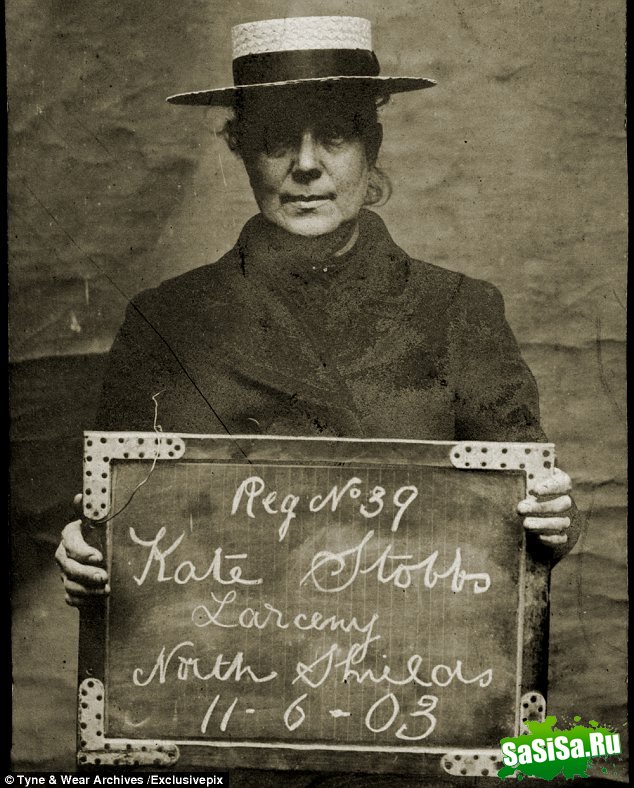 Reg No 39
Kate Stobbs
Larceny
North Shields
11-6-03
SaSiSa.Ru
© Tyne & Wear Archives /Exclusivepix